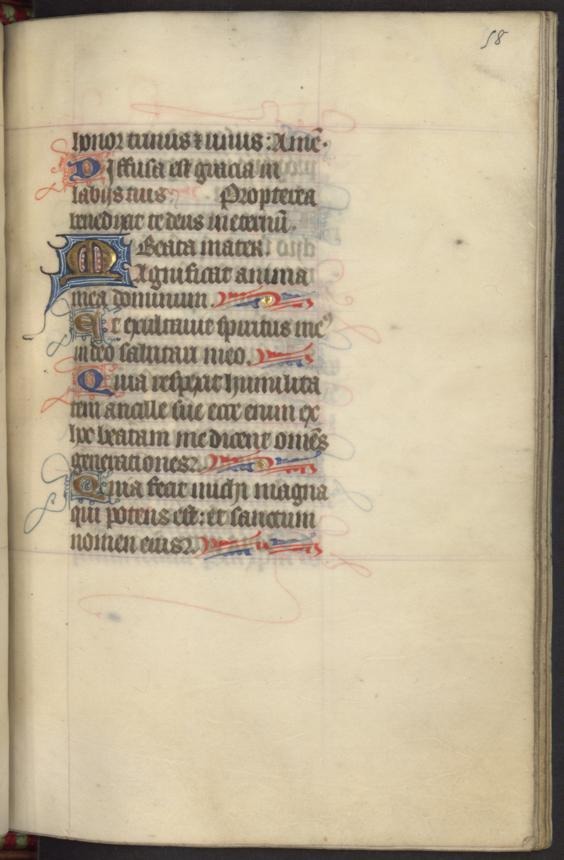 58
honor trinus ⁊ unus : Amē.
Diffusa est gracia in
labijs tuis. Propterea
benedixit te deus in eternū.
Beata mater.
Magnificat anima
mea dominum.
Et exultavit spiritus meꝰ
in deo salutari meo.
Quia respexit humilita
tem ancille sue ecce enim ex
hoc beatam me dicent omēs
generationes.
Quia fecit michi magna
qui potens est: et sanctum
nomen eius.